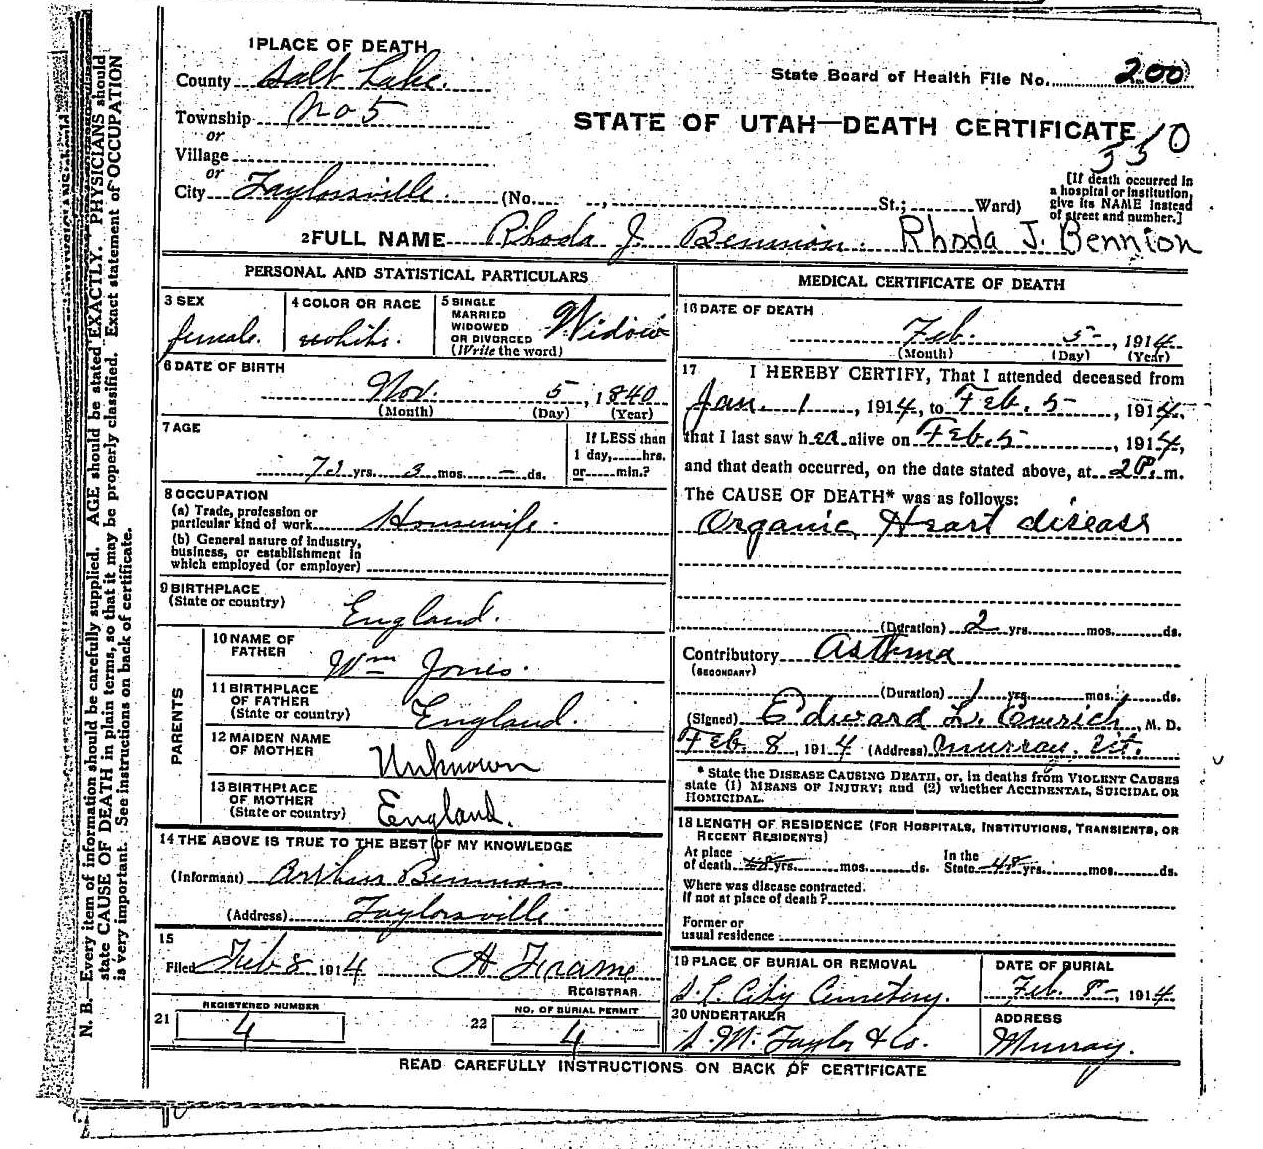 1 PLACE OF DEATH
County Salt Lake.
State Board of Health File No. 200
Township No 5
STATE OF UTAH—DEATH CERTIFICATE
or
Village
350
or
City Taylorsville. (No. , St.; Ward)
[If death occurred in a hospital or institution, give its NAME instead of street and number.]
2 FULL NAME Rhoda J. Bennion. Rhoda J. Bennion
PERSONAL AND STATISTICAL PARTICULARS
3 SEX female.
4 COLOR OR RACE white.
5 SINGLE MARRIED WIDOWED OR DIVORCED (Write the word) Widow
6 DATE OF BIRTH
Nov. 5, 1840
(Month) (Day) (Year)
7 AGE
73 yrs. 3 mos. - ds.
If LESS than 1 day, hrs. or min.?
8 OCCUPATION
(a) Trade, profession or particular kind of work Housewife.
(b) General nature of Industry, business, or establishment in which employed (or employer)
9 BIRTHPLACE
(State or country) England.
PARENTS
10 NAME OF FATHER Wm Jones.
11 BIRTHPLACE OF FATHER (State or country) England.
12 MAIDEN NAME OF MOTHER Unknown
13 BIRTHPLACE OF MOTHER (State or country) England.
14 THE ABOVE IS TRUE TO THE BEST OF MY KNOWLEDGE
(Informant) Arthur Bennion
(Address) Taylorsville
15
Filed Feb 8 1914 A Frame
REGISTRAR.
21 REGISTERED NUMBER 4
22 NO. OF BURIAL PERMIT 4
MEDICAL CERTIFICATE OF DEATH
16 DATE OF DEATH
Feb. 5-, 1914.
(Month) (Day) (Year)
17 I HEREBY CERTIFY, That I attended deceased from
Jan. 1, 1914, to Feb. 5-, 1914,
that I last saw her alive on Feb. 5, 1914,
and that death occurred, on the date stated above, at 2 P. m.
The CAUSE OF DEATH* was as follows:
Organic Heart disease
(Duration) 2 yrs. mos. ds.
Contributory Asthma
(SECONDARY)
(Duration) 1 yrs. mos. ds.
(Signed) Edward L. Emrich, M. D.
Feb 8, 1914 (Address) Murray, Ut.
* State the DISEASE CAUSING DEATH, or, in deaths from VIOLENT CAUSES
state (1) MEANS OF INJURY; and (2) whether ACCIDENTAL, SUICIDAL OR
HOMICIDAL.
18 LENGTH OF RESIDENCE (FOR HOSPITALS, INSTITUTIONS, TRANSIENTS, OR
RECENT RESIDENTS)
At place of death 48 yrs. mos. ds. In the State 48 yrs. mos. ds.
Where was disease contracted.
if not at place of death?
Former or
usual residence
19 PLACE OF BURIAL OR REMOVAL
S. L. City Cemetery.
DATE OF BURIAL
Feb. 8-, 1914
20 UNDERTAKER
S. M. Taylor & Co.
ADDRESS
Murray.
READ CAREFULLY INSTRUCTIONS ON BACK OF CERTIFICATE
N. B.—Every item of information should be carefully supplied. AGE should be stated EXACTLY. PHYSICIANS should
state CAUSE OF DEATH in plain terms, so that it may be properly classified. Exact statement of OCCUPATION
is very important. See instructions on back of certificate.